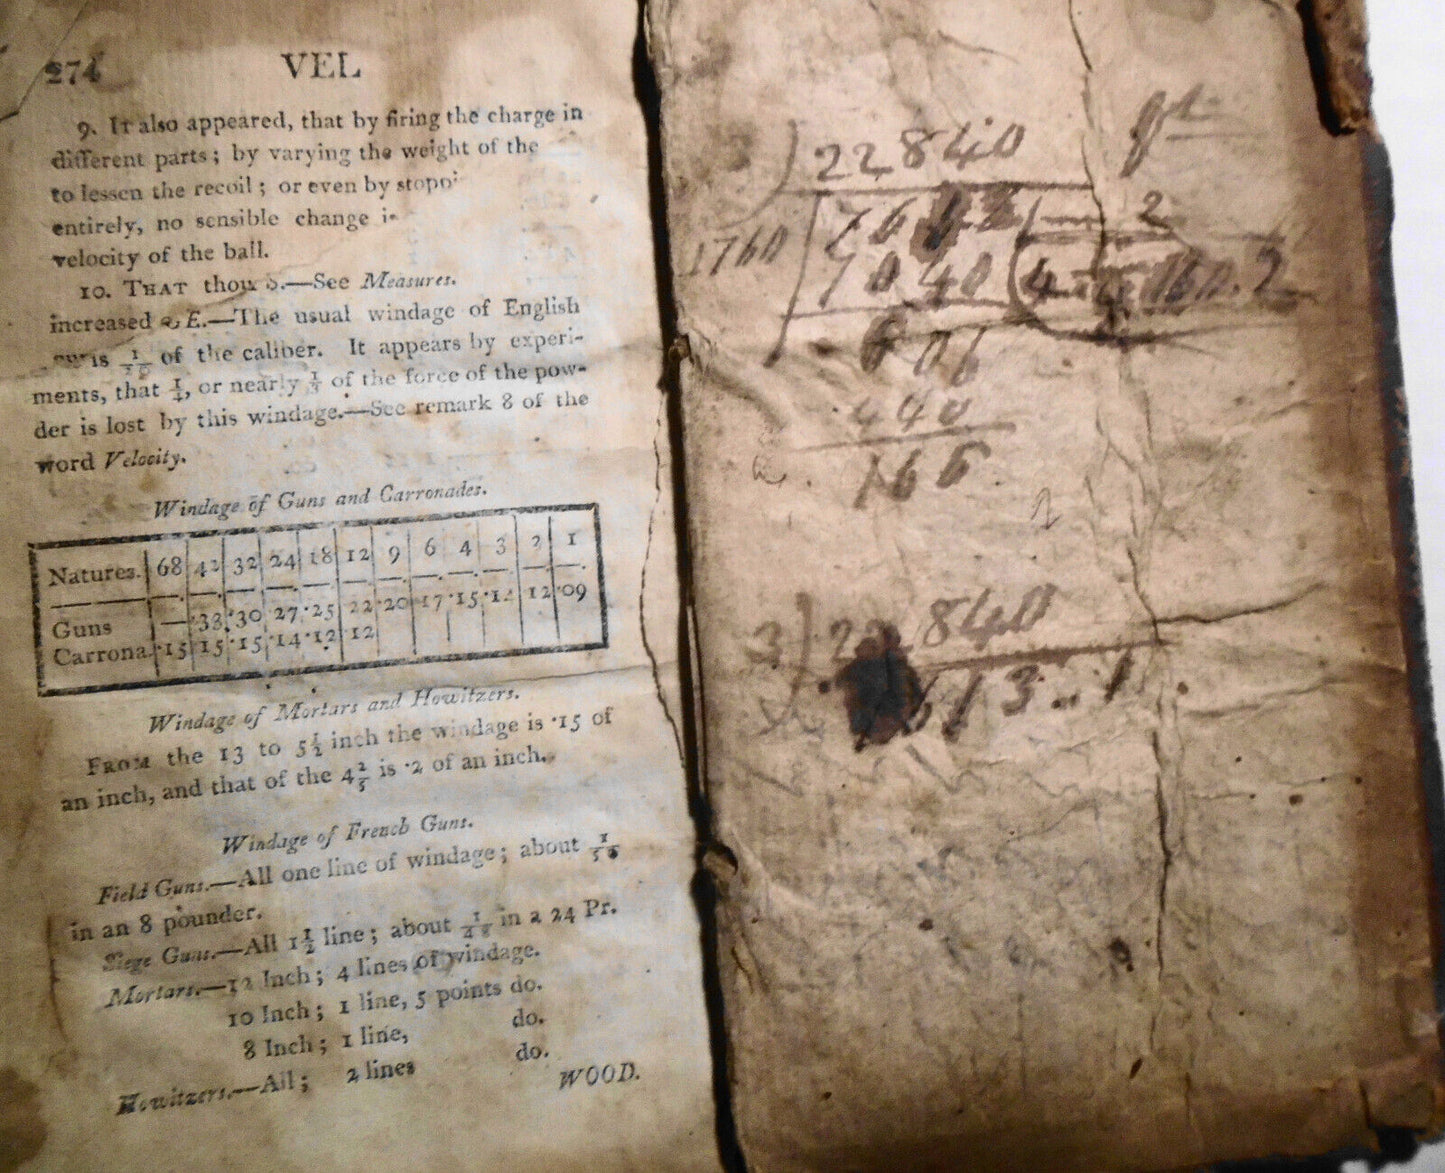 274 VEL
9. It also appeared, that by firing the charge in
different parts; by varying the weight of the
to lessen the recoil; or even by stopp
entirely, no sensible change i
velocity of the ball.
10. THAT thou S.—See Measures.
increased E.—The usual windage of English
is 1/20 of the caliber. It appears by experi-
ments, that 1/4, or nearly 1/3 of the force of the pow-
der is lost by this windage.—See remark 8 of the
word Velocity.
Windage of Guns and Carronades.
Natures. 68 42 32 24 18 12 9 6 4 3 2 1
Guns — ·33 ·30 27 ·25 22 ·20 17 ·15 ·14 12 ·09
Carrona. ·15 15 ·15 ·14 ·12 ·12
Windage of Mortars and Howitzers.
FROM the 13 to 5 1/2 inch the windage is ·15 of
an inch, and that of the 4 2/5 is ·2 of an inch.
Windage of French Guns.
Field Guns.—All one line of windage; about
in an 8 pounder.
Siege Guns.—All 1 1/2 line; about in a 24 Pr.
Mortars.—12 Inch; 4 lines of windage.
10 Inch; 1 line, 5 points do.
8 Inch; 1 line, do.
Howitzers.—All; 2 lines do.
WOOD.
22840
1760
7040
440
166
2
3) 22840
613..1